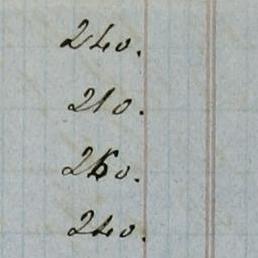 240.
210.
260.
240.